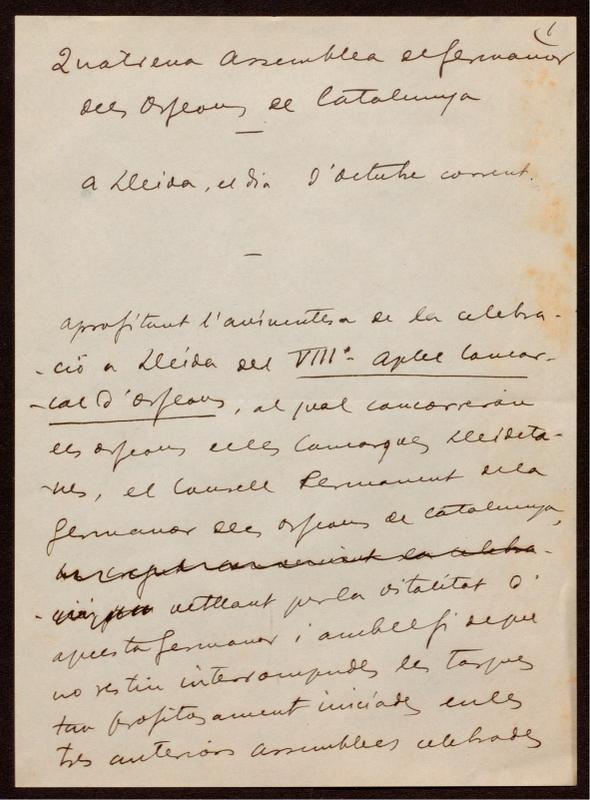 1
Quatrena Assemblea de Germanor
dels Orfeons de Catalunya
A Lleida, el dia d'octubre corrent.
Aprofitant l'avinentesa de la celebra-
ció a Lleida del VIIIè Aplec Comar-
cal d'Orfeons, al qual concorreràn
els orfeons de les Comarques Lleideta-
nes, el Consell Permanent de la
Germanor dels Orfeons de Catalunya,
ha cregut convenient la celebra-
vetllant per la vitalitat d'
aquesta Germanor i amb el fi de que
no restin interrompudes les tasques
tan profitosament iniciades en les
tres anteriors Assemblees celebrades